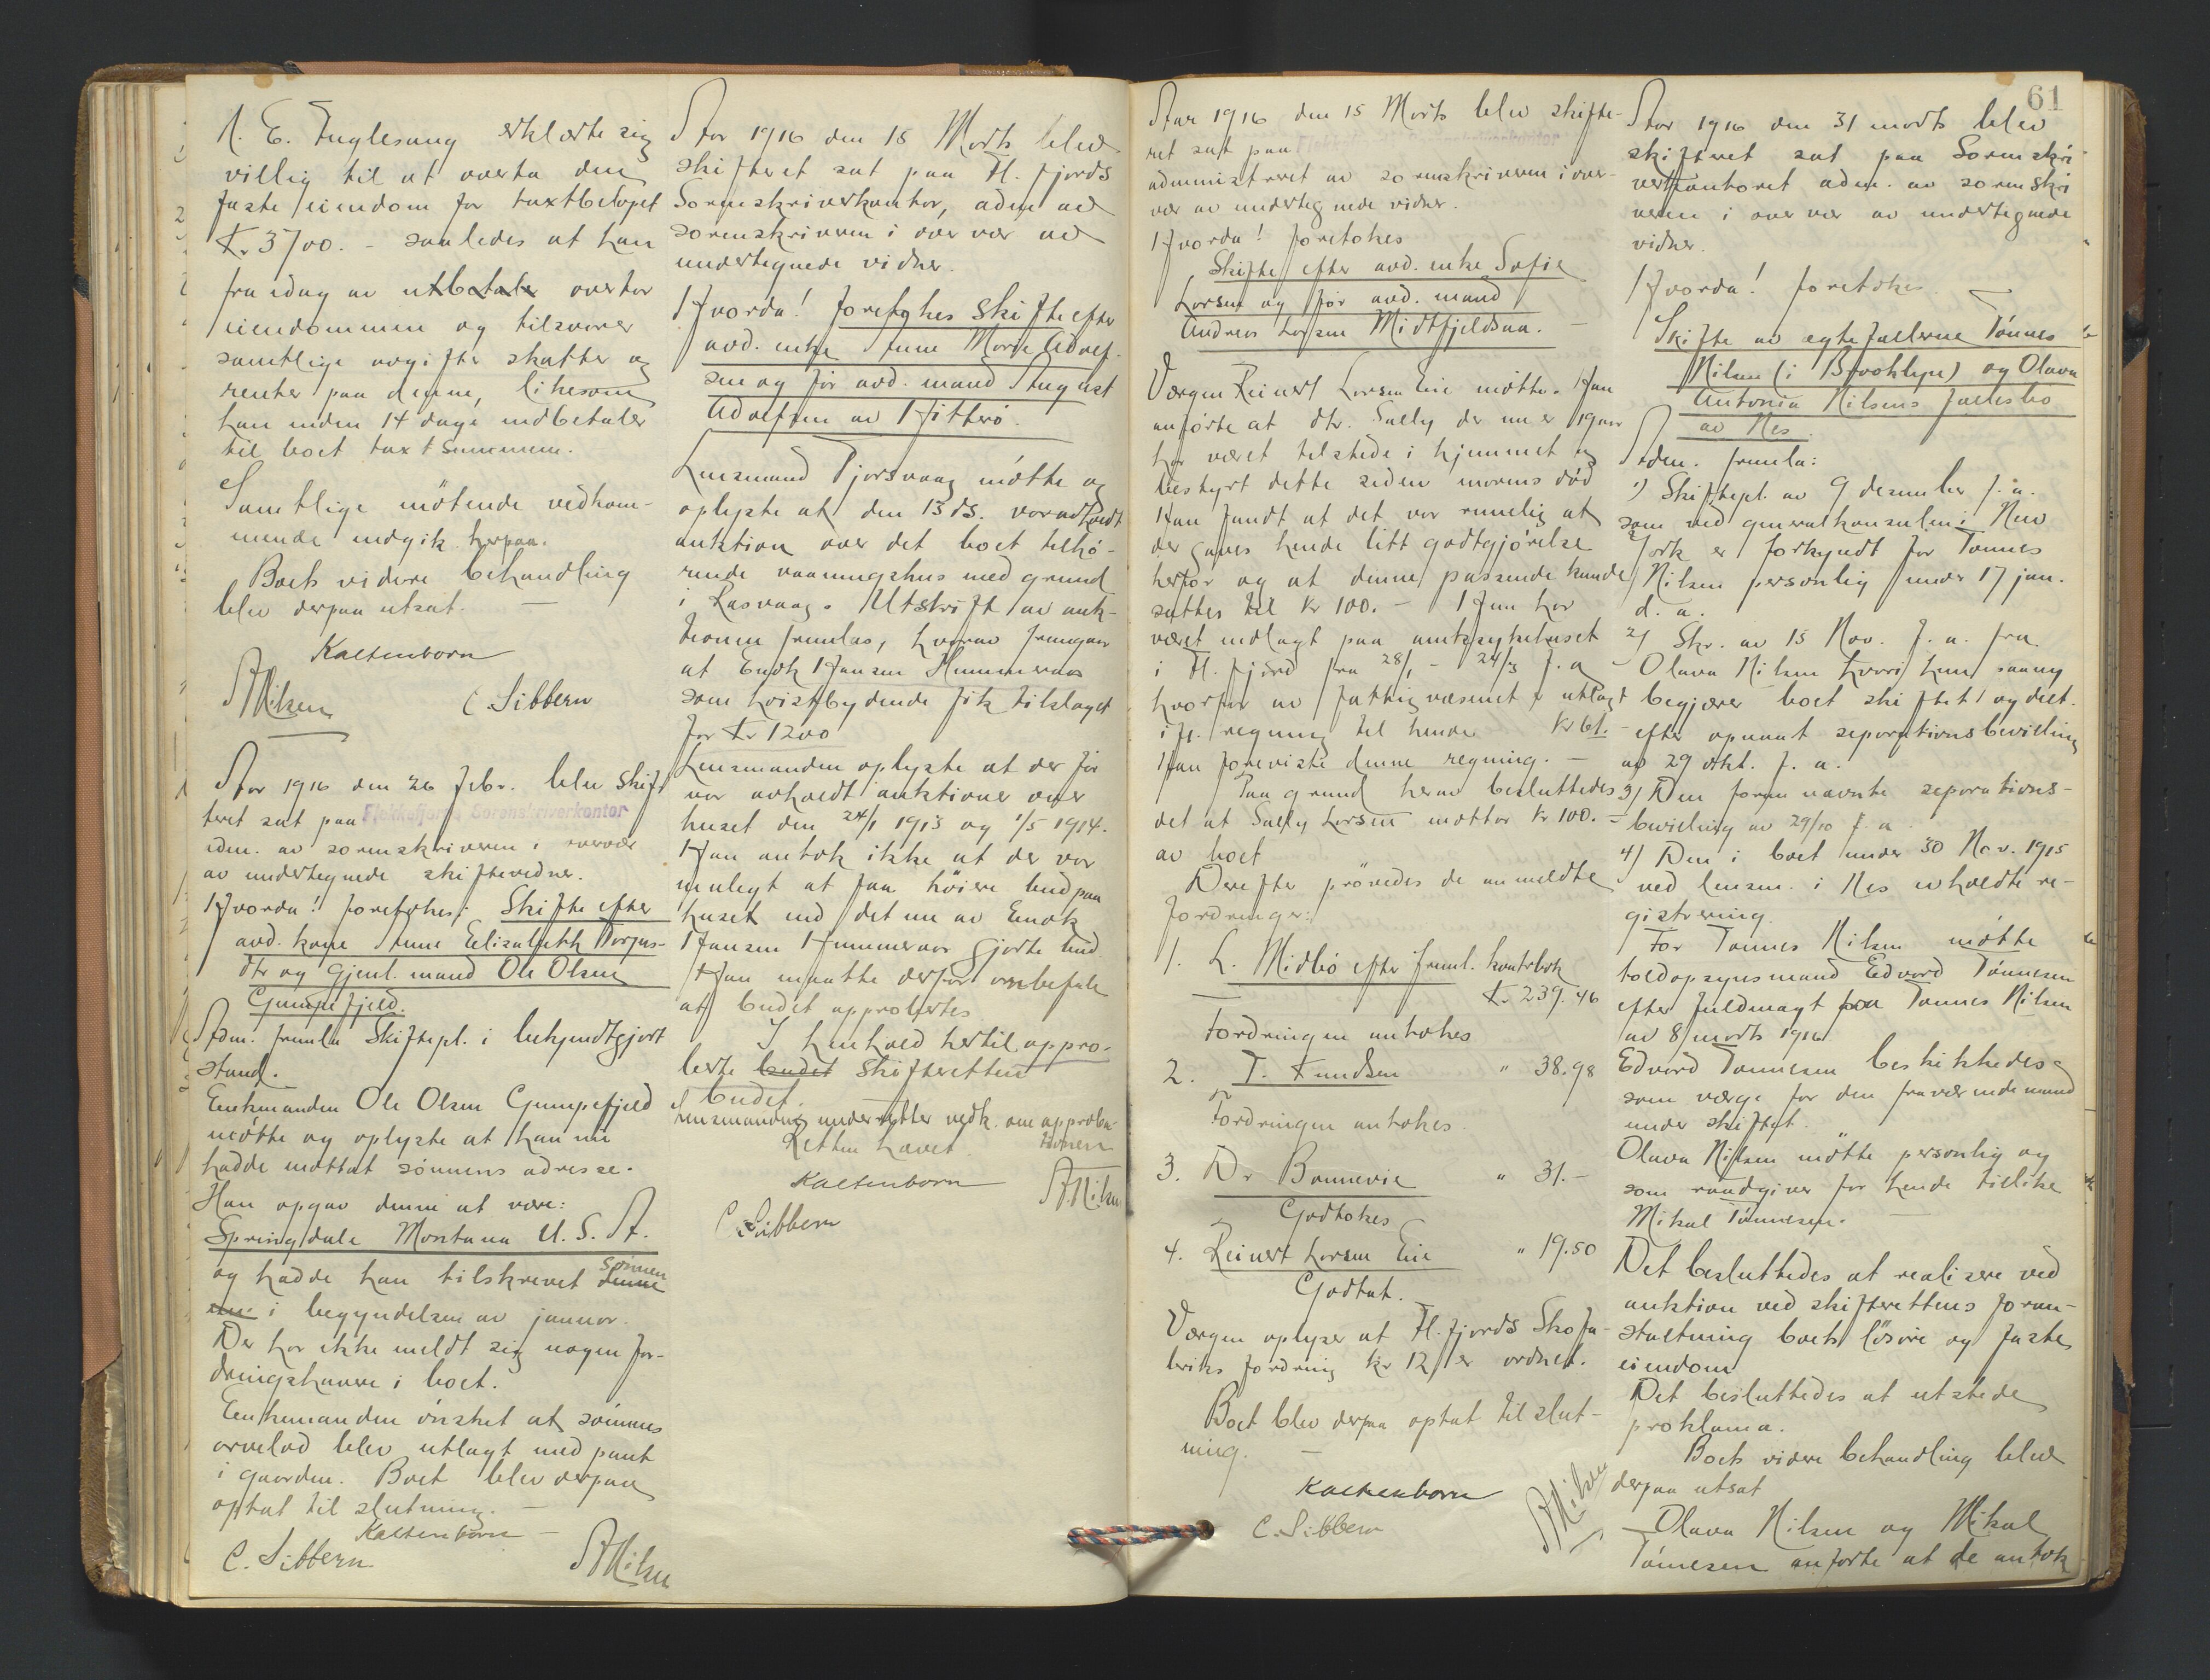 A. E. Fuglesang erklærte sig
villig til at overta den
faste eiendom for taxtbeløpet
Kr 3700.- saaledes at han
fra idag av utbetaler overtar
eiendommen og tilsvarer
samtlige avgifter skatter og
renter paa denne, likesom
han inden 14 dage indbetaler
til boet taxtsummen.
Samtlige møtende vedkom-
mende indgik herpaa.
Boets videre behandling
blev derpaa utsat. —
Kaltenborn
A Nilsen C Sibbern
Aar 1916 den 26 febr. blev skif-
teret sat paa Flekkefjords Sorenskriverkontor
adm. av sorenskriveren i overvær
av undertegnede skiftevidner.
Hvorda! foretokes: Skifte efter
avd. kone Anne Elisabeth Torjus-
dtr og gjenl. mand Ole Olsen
Gumpefjeld.
Adm. fremla skiftepl. i bekjendtgjort
stand.
Enkemanden Ole Olsen Gumpefjeld
møtte og oplyste at han nu
hadde mottat sønnens adresse.
Han opgav denne at være:
Springdale Montana U. S. A.
og hadde han tilskrevet denne sønnen
i begyndelsen av januar.
Der har ikke meldt sig nogen for-
dringshavere i boet.
Enkemanden ønsket at sønnens
arvelod blev utlagt med pant
i gaarden. Boet blev derpaa
optat til slutning. —
Kaltenborn
C. Sibbern A Nilsen
Aar 1916 den 15 Marts blev
skifteret sat paa Fl. fjords
Sorenskriverkontor, adm av
sorenskriveren i overvær av
undertegnede vidner.
Hvorda! foretokes Skifte efter
avd. enke Anne Marie Adolf-
sen og før avd. mand August
Adolfsen av Hitterø.
Lensmand Tjorsvaag møtte og
oplyste at den 13 ds. var avholdt
auktion over det boet tilhø-
rende vaaningshus med grund
i Rasvaag. Utskrift av auk-
tionen fremlas, hvorav fremgaar
at Enok Hansen Hummervor
som høistbydende fik tilslaget
for Kr 1200
Lensmanden oplyste at der før
var avholdt auktioner over
huset den 24/1 1913 og 1/5 1914.
Han antok ikke at der var
mulegt at faa høiere bud paa
huset end det nu av Enok
Hansen Hummervor gjorte bud.
Han maatte derfor anbefale
at budet approbertes
I henhold hertil appro-
berte budet skifteretten
budet.
Lensmanden underretter vedk. om approba-
tionen
Retten hævet
Kaltenborn
A Nilsen
C Sibbern
61
Aar 1916 den 15 Marts blev skifte-
ret sat paa
administreret av sorenskriveren i over-
vær av undertegnede vidner.
Hvorda! foretokes
Skifte efter avd. enke Sofie
Larsen og før avd. mand
Andreas Larsen Midtfjeldsaa. —
Værgen Reinert Larsen Eie møtte. Han
anførte at dtr. Sally der nu er 19 aar
har været tilstede i hjemmet og
bestyrt dette siden morens død
Han fandt at det var rimelig at
der gaves hende litt godtgjørelse
herfor og at denne passende kunde
sættes til kr 100.- Hun har
været indlagt paa amtssykehuset
i Fl. fjord fra 28/1 - 24/3 f. a
hvorfor av fattigvæsenet er utlagt
ifl. regning til hende kr 61.-
Han foreviste denne regning. —
Paa grund herav besluttedes
det at Sally Larsen mottar kr 100.-
av boet
Derefter prøvedes de anmeldte
fordringer:
1. L. Midbø efter freml. kontrabok
Kr. 239.46
Fordringen antokes
2. T. Knudsen " 38.98
Fordringen antokes
3. Dr Bonnevie " 31.-
Godtokes
4. Reinert Larsen Eie " 19.50
Godtat.
Værgen oplyser at Fl. fjords Skofa-
briks fordring kr 12 er ordnet.
Boet blev derpaa optat til slut-
ning. —
Kaltenborn
C. Sibbern A Nilsen
Aar 1916 den 31 marts blev
skifteret sat paa Sorenskri-
verkontoret adm. av sorenskri
veren i overvær av undertegnede
vidner.
Hvorda! foretokes
Skifte av egtefællerne Tønnes
Nilsen (i Brooklyn) og Olava
Antonia Nilsens fællesbo
av Nes.
Adm. fremla:
1) Skiftepl. av 9 desember f. a.
som ved generalkonsulen i New
York er forkyndt for Tønnes
Nilsen personlig under 17 jan.
d. a.
2) Skr. av 15 Nov. f. a. fra
Olava Nilsen hvori hun
begjærer boet skiftet
efter opnaat separationsbevilling
av 29 okt. f. a.
3) Den foran nævnte separations-
bevilling av 29/10 f. a.
4) Den i boet under 30 Nov. 1915
ved lensm. i Nes avholdte re-
gistrering.
For Tønnes Nilsen møtte
toldopsynsmand Edvard Tønnesen
efter fuldmagt fra Tønnes Nilsen
av 8 marts 1916
Edvard Tønnesen beskikkedes
som værge for den fraværende mand
under skiftet.
Olava Nilsen møtte personlig og
som raadgiver for hende tillike
Mikal Tønnesen. —
Det besluttedes at realisere ved
auktion ved skifterettens foran-
staltning boets løsøre og faste
eiendom
Det besluttedes at utstede
proklama.
Boets videre behandling blev
derpaa utsat
Olava Nilsen og Mikal
Tønnesen anførte at de antok